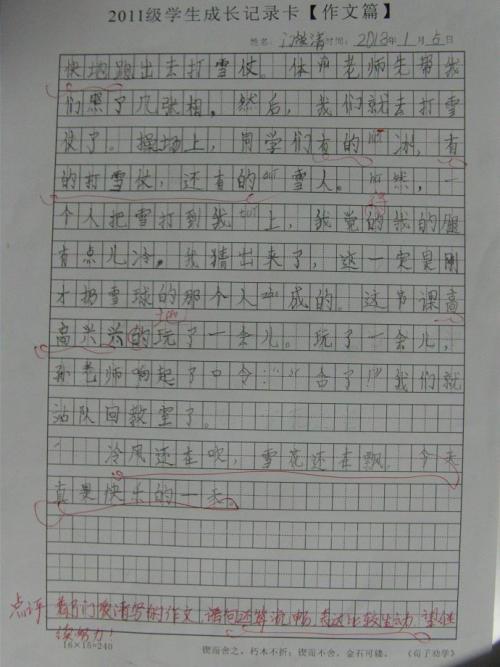 2011级学生成长记录卡【作文篇】
姓名: 时间: 2013年1月5日
快地跑出去打雪仗。体育老师先帮我
们照了几张相。然后，我们就去打雪
仗了。操场上，同学们有的 冰，有
的打雪仗，还有的 雪人。 然，一
个人把雪打到我 上，我觉的我的腿
有点儿冷。我猜出来了，这一定是刚
才扔雪球的那个人 成的。这节课高
高兴兴的玩了一会儿。玩了一会儿，
孙老师响起了口令："合了！"我们就
站队回教室了。
冷风还在吹，雪花还在飘。今天
真是快乐的一天。
点评 写的作文 语句还算流畅 表达比较生动 望继
续努力！
16×15=240
锲而舍之，朽木不折；锲而不舍，金石可镂。《荀子劝学》